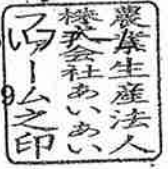 農業生産法人
株式会社あいあい
ファーム之印